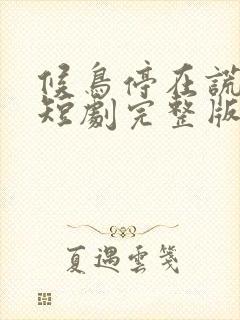 候鳥停在謊
短劇完整版
夏遇雲箋